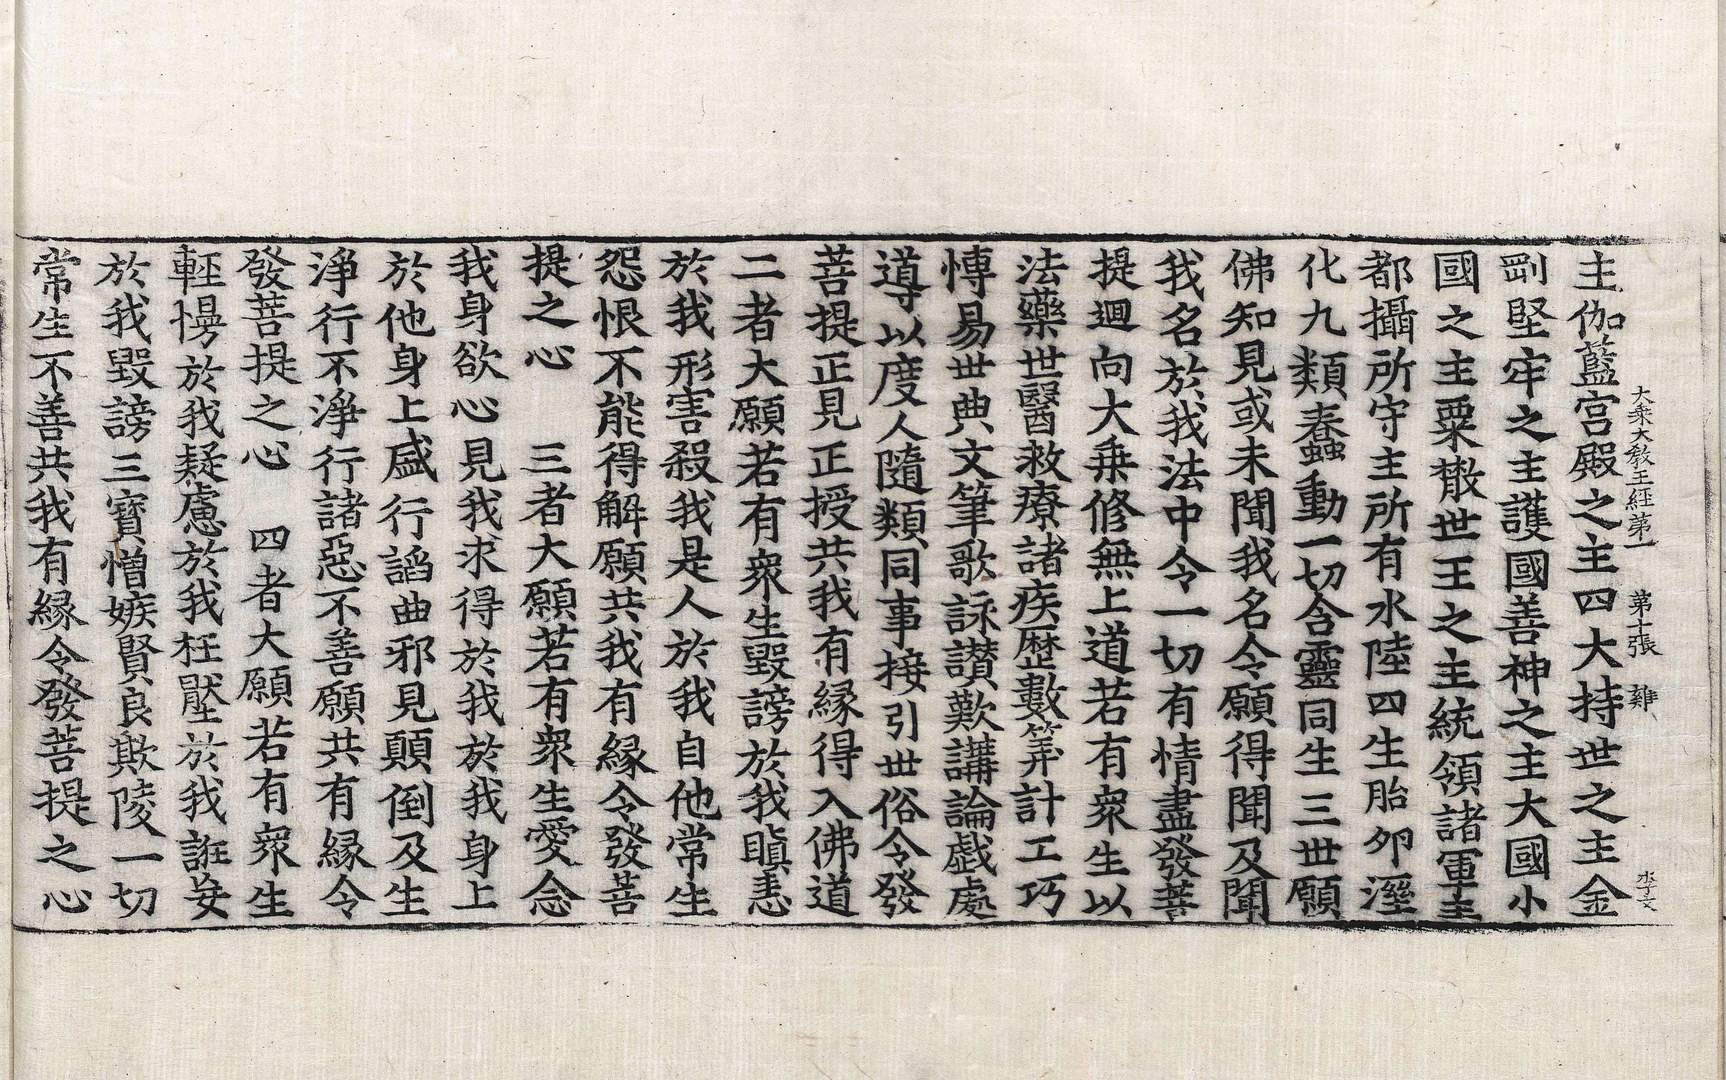 大乘大教王經第一 第十張 難 水子文
主伽藍宮殿之主四大持世之主金
剛堅牢之主護國善神之主大國小
國之主粟散世王之主統領諸軍主
都攝所守主所有水陸四生胎夘溼
化九類蠢動一切含靈同生三世願
佛知見或未聞我名令願得聞及聞
我名於我法中令一切有情盡發菩
提迴向大乘修無上道若有衆生以
法藥世醫救療諸疾歷數筭計工巧
博易世典文筆歌詠讃歎講論戲處
導以度人隨類同事接引世俗令發
菩提正見正授共我有緣得入佛道
二者大願若有衆生毀謗於我瞋恚
於我形害殺我是人於我自他常生
怨恨不能得解願共我有緣令發菩
提之心 三者大願若有衆生愛念
我身欲心見我求得於我於我身上
於他身上盛行諂曲邪見顛倒及生
淨行不淨行諸惡不善願共有緣令
發菩提之心 四者大願若有衆生
輕慢於我疑慮於我枉壓於我誑妄
於我毀謗三寶憎嫉賢良欺陵一切
常生不善共我有緣令發菩提之心